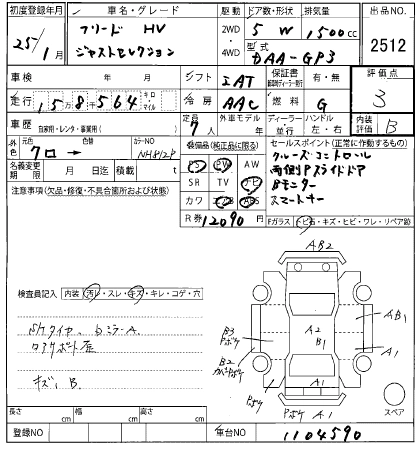 初度登録年月 車名・グレード 駆動 ドア数・形状 排気量 出品NO.
25/1月 フリード HV ジャストセレクション 2WD・4WD 5 W 1500cc 2512
型式 DAA-GP3
車検 年 月 シフト IAT 保証書 有・無 評価点 3
走行 1万8千564 キロ マイル 冷房 AAC 燃料 G
車歴 自家用・レンタ・事業用( ) 定員 7人 外車モデル 年 ディーラー・並行 ハンドル 左・右 内装評価 B
外色 元色 クロ→ 色替 カラーNO NH812P
装備品(純正品に限る) PS PW AW
セールスポイント(正常に作動するもの)
クルーズコントロール
両側Pスライドドア
Bモニター
スマートキー
名義変更期限 月 日迄 積載 t
SR TV ナビ
注意事項(欠品・修復・不具合箇所および状態)
カワ ABS
R券 12090 円
Fガラス トビ石・キズ・ヒビ・ワレ・リペア跡
AB2
検査員記入 内装 汚レ・スレ・キズ・キレ・コゲ・穴
AB1
B3 Pポケ A2 B1 A1
B2
A1
キズ、B.
Pポケ Pポケ A1 スペア
長さ cm 幅 cm 高さ cm
登録NO 車台NO 1104590